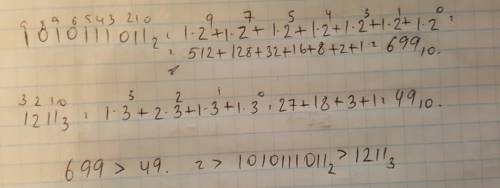 9 8 9 6 5 4 3 2 1 0
1010111011₂ = 1·2⁹+1·2⁷+1·2⁵+1·2⁴+1·2³+1·2¹+1·2⁰=
= 512+128+32+16+8+2+1=699₁₀.
3 2 1 0
1211₃ = 1·3³+2·3²+1·3¹+1·3⁰=27+18+3+1=49₁₀.
699 > 49. => 1010111011₂ > 1211₃